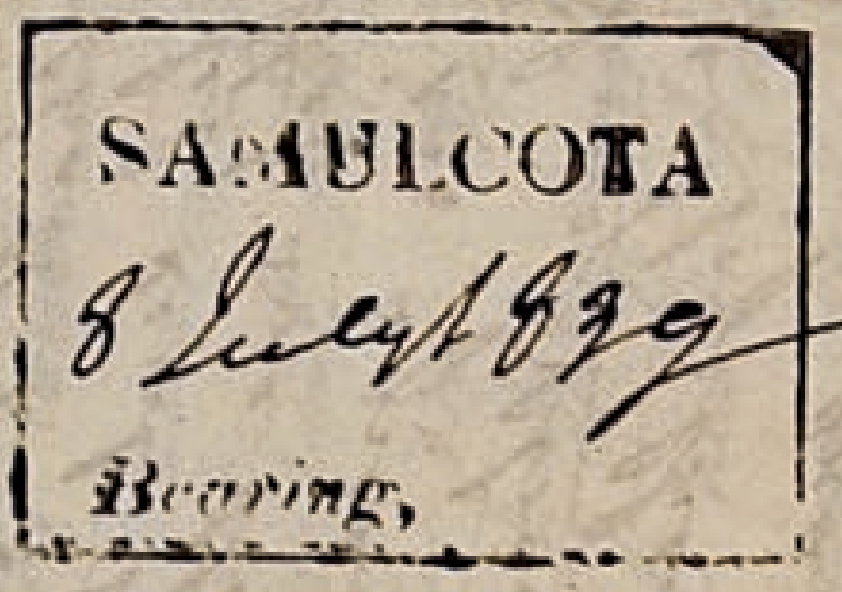 SAMULCOTA
8 July 1839
Bearing,